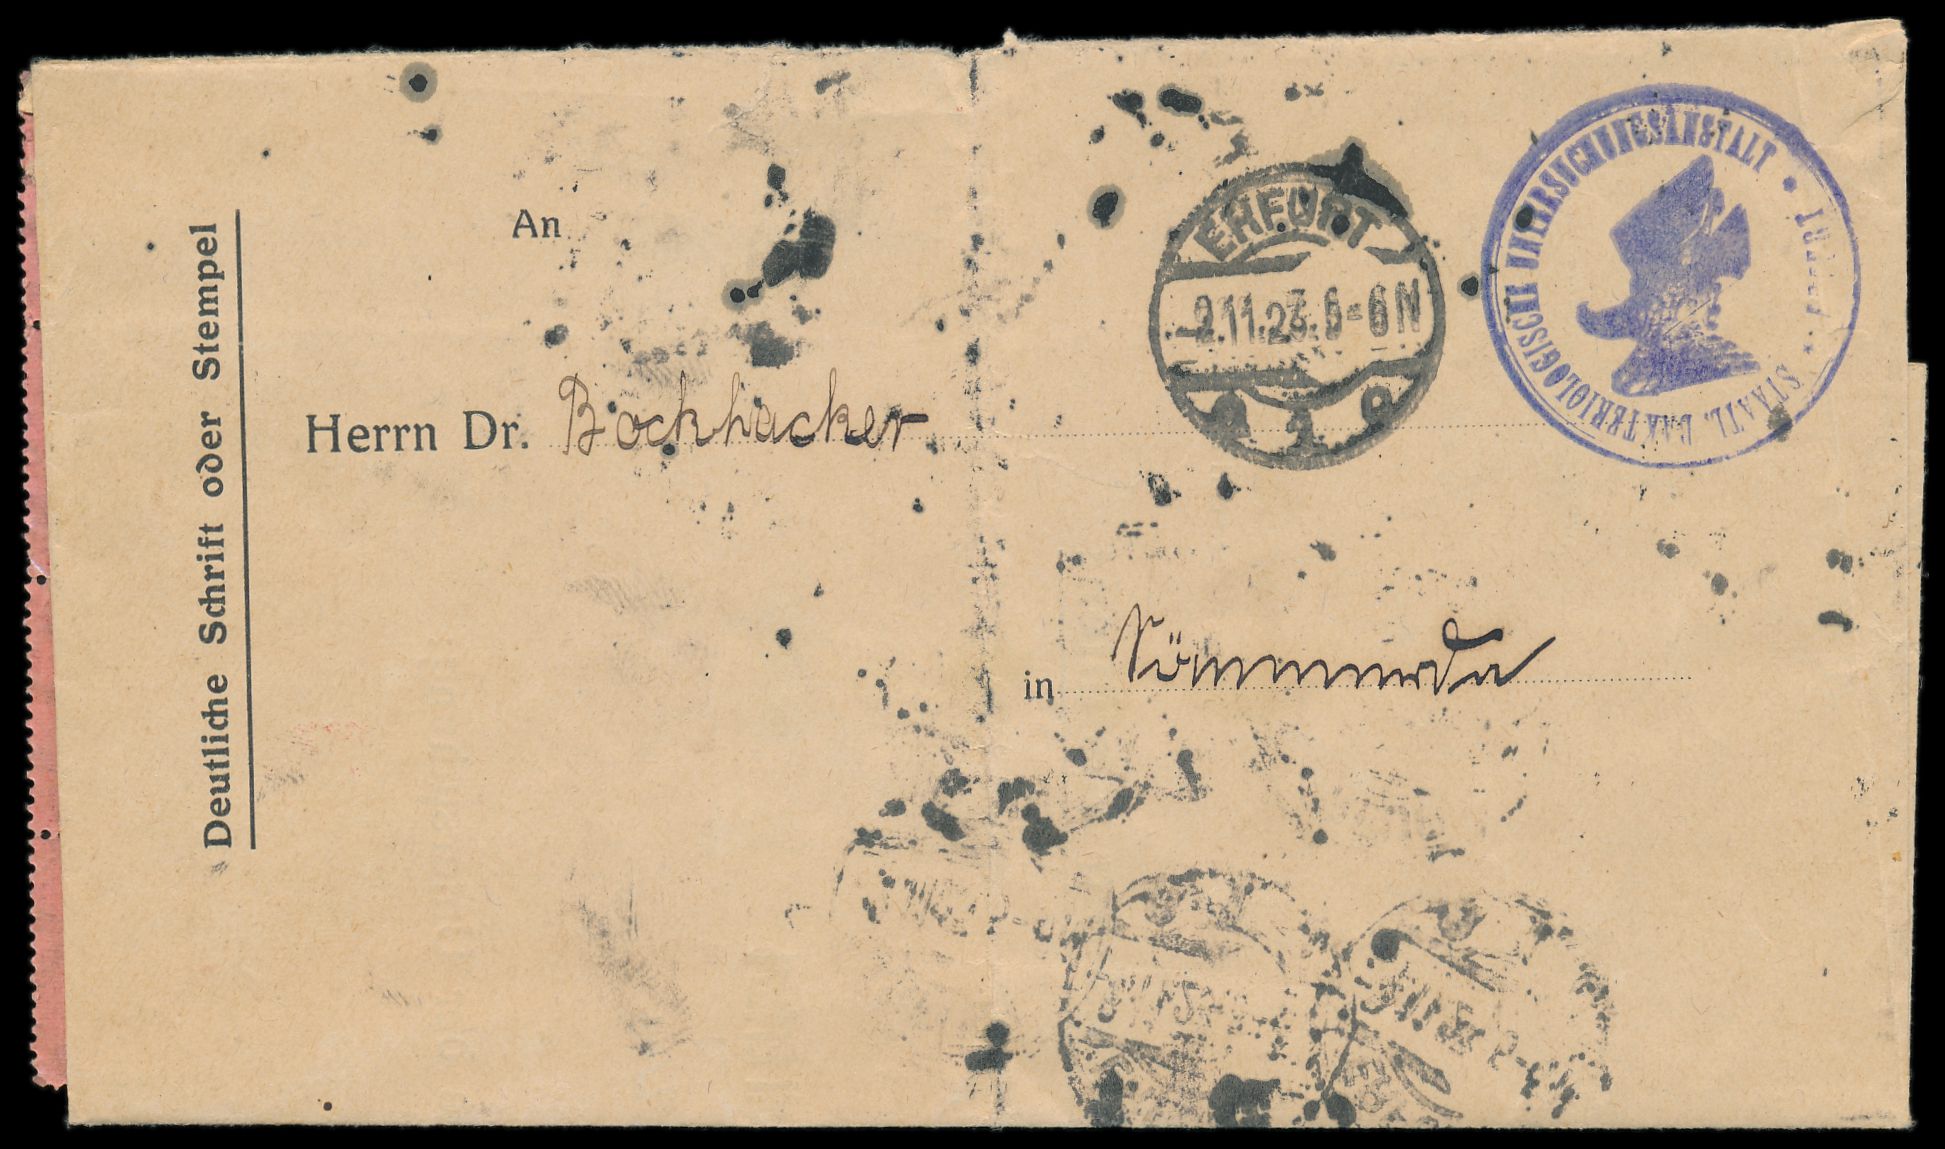 Deutliche Schrift oder Stempel
An
Herrn Dr. Bockhacker
in Sömmerda
ERFURT
2.11.23. 5-6 N
STAATL. BAKTERIOLOGISCHE UNTERSUCHUNGSANSTALT * ERFURT *